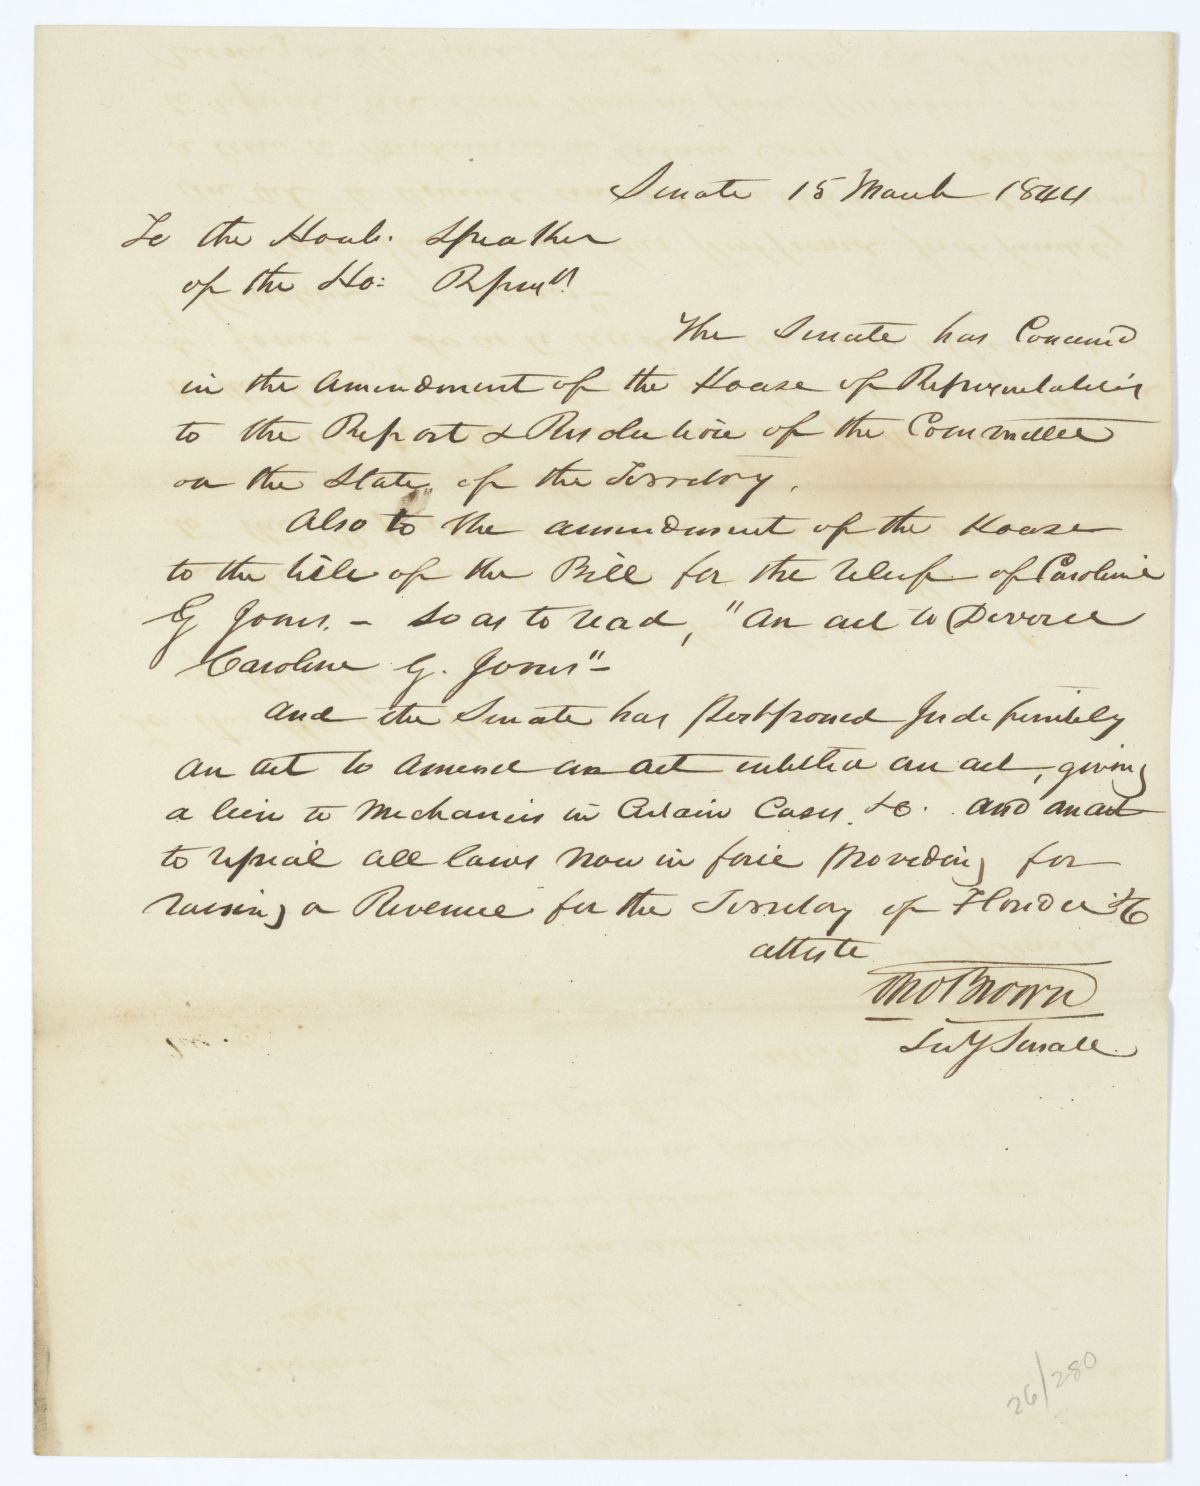 Senate 15 March 1844
To the Honb. Speaker
of the Ho: Represts
The Senate has Concurred
in the amendment of the House of Representatives
to the Report & Resolution of the Committee
on the State, of the Territory.
Also to the amendment of the House
to the title of the Bill for the relief of Caroline
G Jones. - so as to read, "an act to Divorce
Caroline G. Jones" -
And the Senate has Postponed Indefinitely
an act to amend an act entitled an act, giving
a lien to Mechanics in Certain Cases. &c. and an act
to repeal all laws now in force Providing for
raising a Revenue for the Territory of Florida &c
atteste
Tho Brown
Secy Senate
26/280